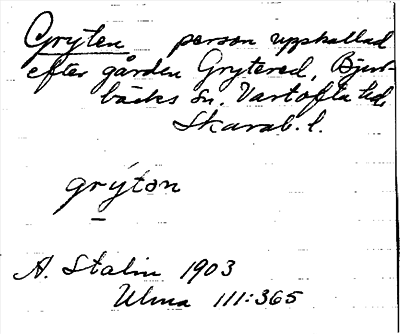 Gryten person uppkallad
efter gården Grytered, Bjur-
bäcks sn. Vartofta hd,
Skarab. l.
grýtən
A. Stalin 1903
Ulma 111:365